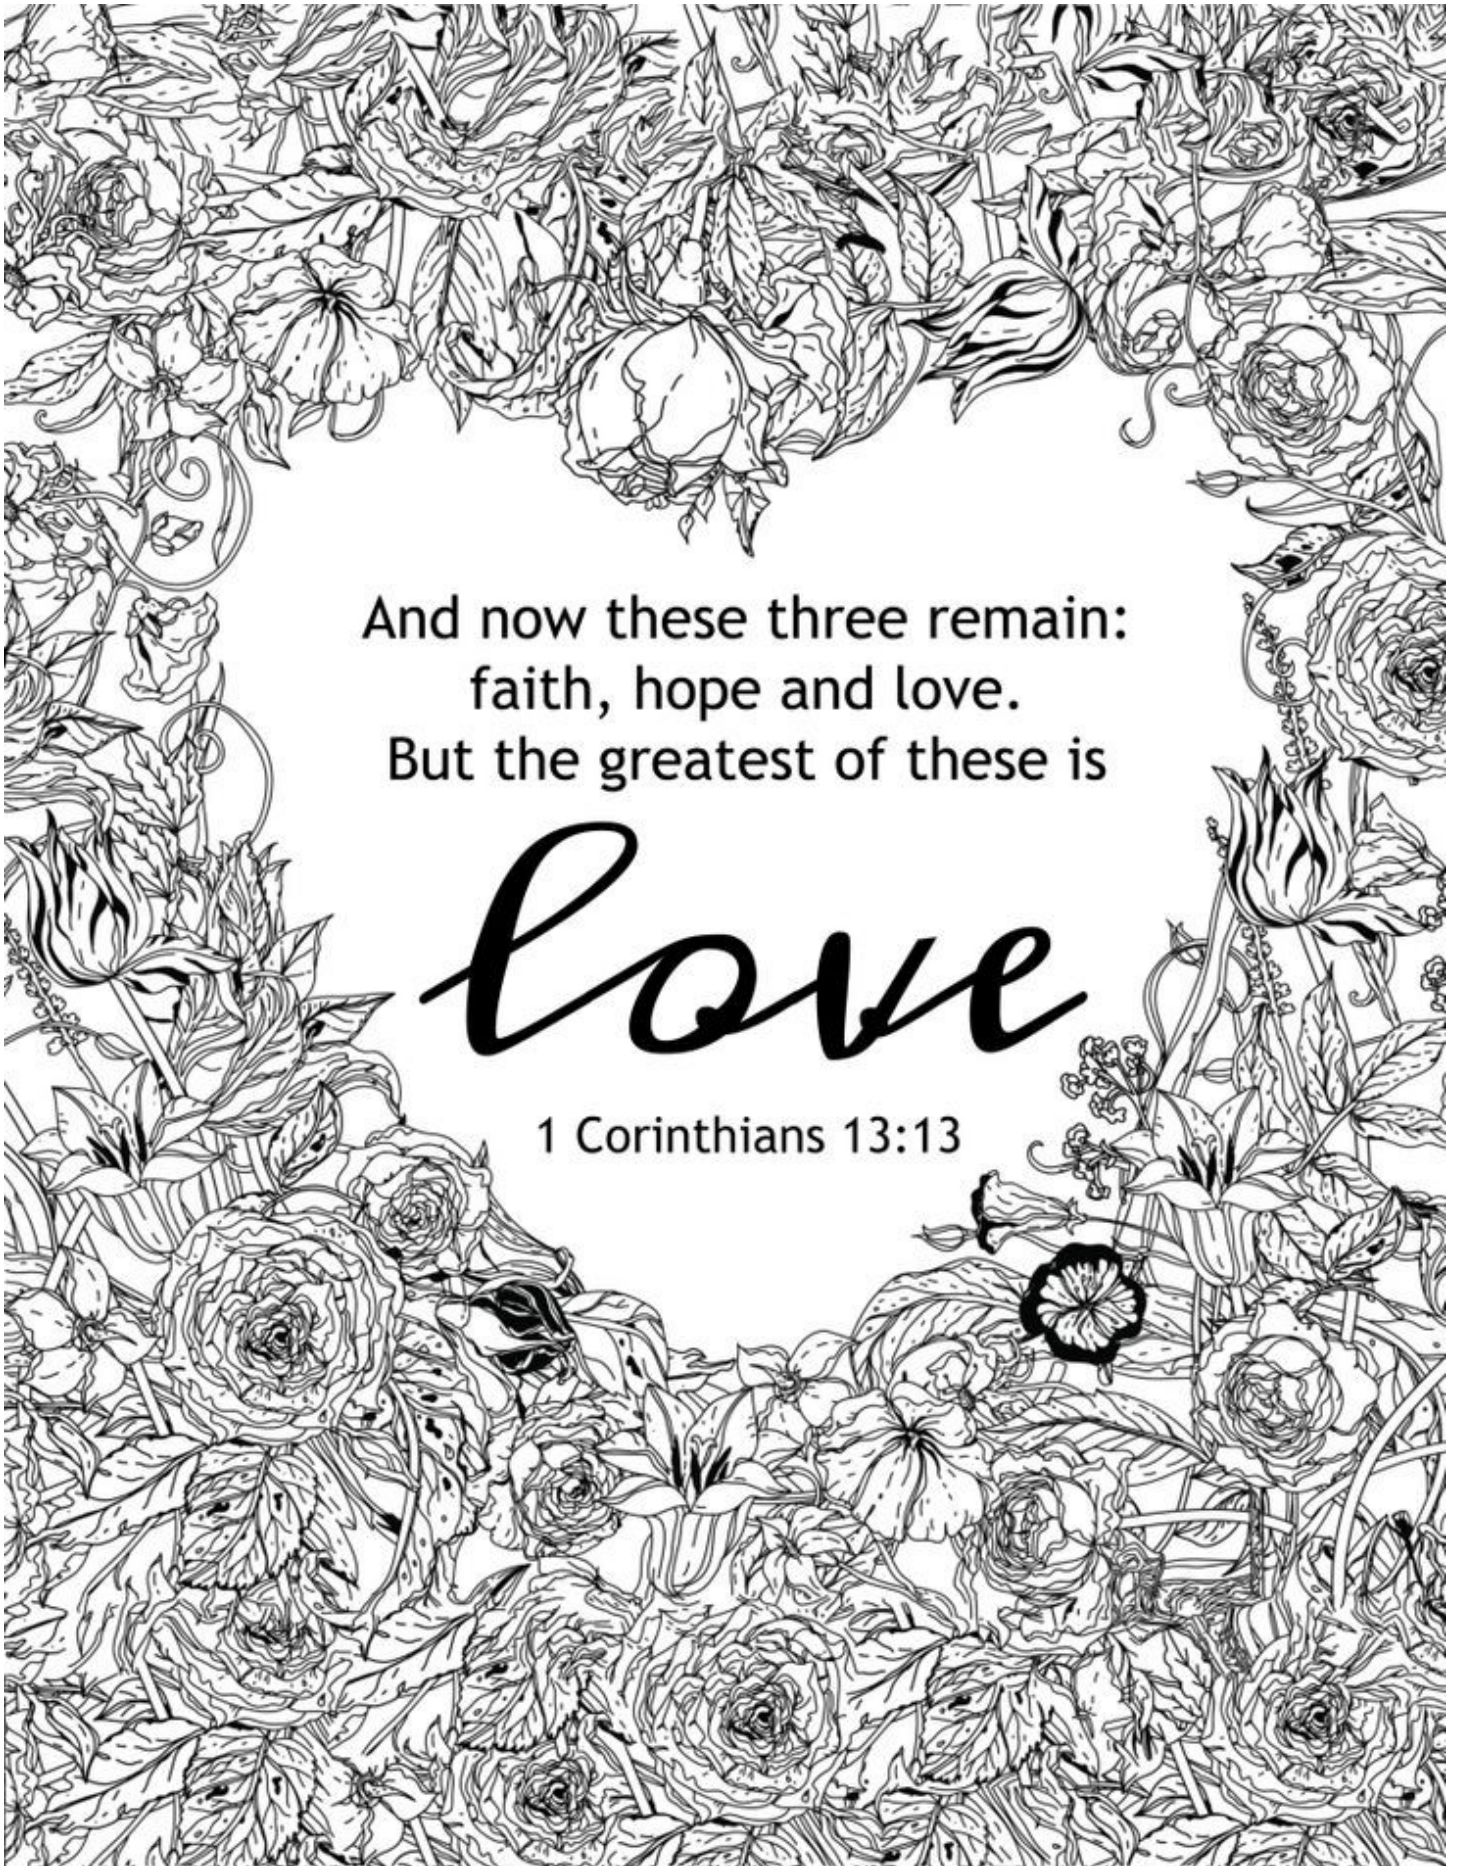 And now these three remain:
faith, hope and love.
But the greatest of these is
love
1 Corinthians 13:13